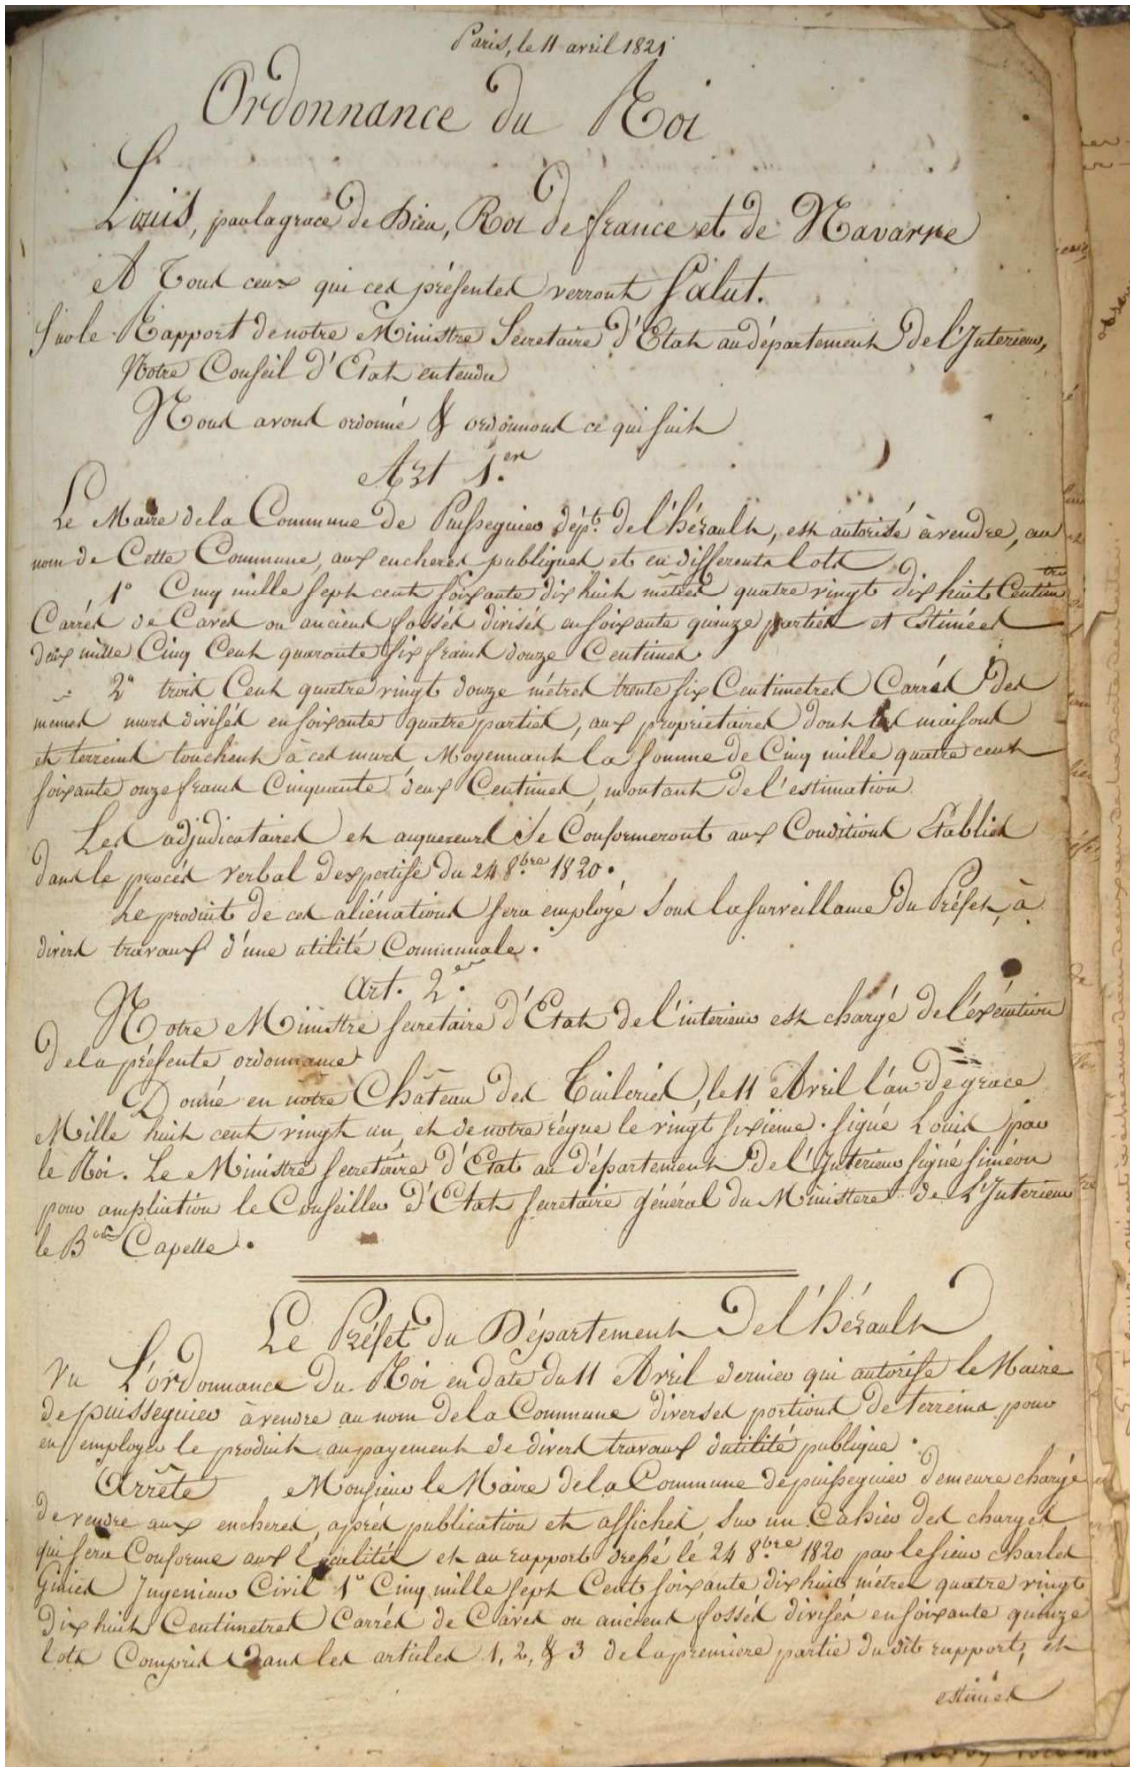 Paris, le 11 avril 1821
Ordonnance du Roi
Louis, par la grace de Dieu, Roi de france et de Navarre
A Tous ceux qui ces présentes verront Salut.
Sur le Rapport de notre Ministre Secretaire d'Etat au département de l'Interieur,
Notre Conseil d'Etat entendu
Nous avons ordonné & ordonnons ce qui suit
Art 1.er
Le Maire de la Commune de Puisseguier dép.t de l'hérault, est autorisé à vendre, au
nom de Cette Commune, aux encheres publiques et en differents lots
1° Cinq mille sept cent soixante dix huit mètres quatre vingt dix huit Centimtres
Carrés de Caves ou anciens fossés divisés en soixante quinze parties et Estimées
deux mille Cinq Cent quarante six francs douze Centimes
2° trois Cent quatre vingt douze métres trente six Centimetres Carrés des
mêmes murs divisés en soixante quatre parties, aux proprietaires dont les maisons
et terreins touchent à ces murs, Moyennant la somme de Cinq mille quatre cent
soixante onze francs Cinquante deux Centimes, montant de l'estimation.
Les adjudicataires et acquereurs se Conformeront aux Conditions Etablies
dans le procés verbal d'expertise du 24 8.bre 1820.
Le produit de ces aliénations sera employé sous la surveillance du Préfet, à
divers travaux d'une utilité Communale.
Art. 2.e
Notre Ministre secretaire d'Etat de l'interieur est chargé de l'exécution
de la présente ordonnance
Donné en nôtre Château des Tuileries, le 11 Avril l'an de grace
Mille huit cent vingt un, et de notre régne le vingt sixième. signé Louis par
le Roi. Le Ministre secretaire d'Etat au département de l'Interieur signé siméon
pour ampliation le Conseiller d'Etat secretaire général du Ministere de L'Interieur
le B.on Capelle.
Le Préfet du Département de l'hérault
Vu L'ordonnance du Roi en date du 11 Avril dernier qui autorise le Maire
de puisseguier à vendre au nom de la Commune diverses portions de terreins pour
en employer le produit au payement de divers travaux d'utilité publique.
Arrête Monsieur le Maire de la Commune de puisseguier demeure chargé
de vendre aux encheres, aprés publication et affiches, sur un Cahier des charges
qui sera Conforme aux localités et au rapport dressé le 24 8.bre 1820 par le sieur charles
Ginies Ingenieur Civil 1° Cinq mille sept Cent soixante dix huit métres quatre vingt
dix huit Centimetres Carrés de Caves ou anciens fossés divisés en soixante quinze
lots Compris dans les articles 1, 2, & 3 de la premiere partie du dit rapport, et
estimés